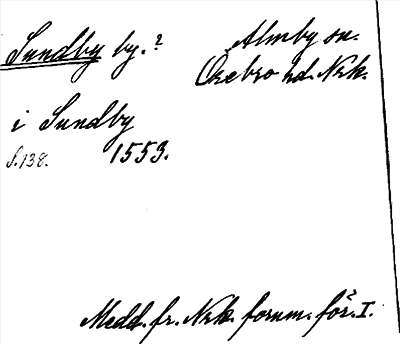 Sundby by.?
Almby sn.
Örebro hd. Nrk.
i Sundby
S. 138. 1553.
Medd. fr. Nrk. fornm. för. I.